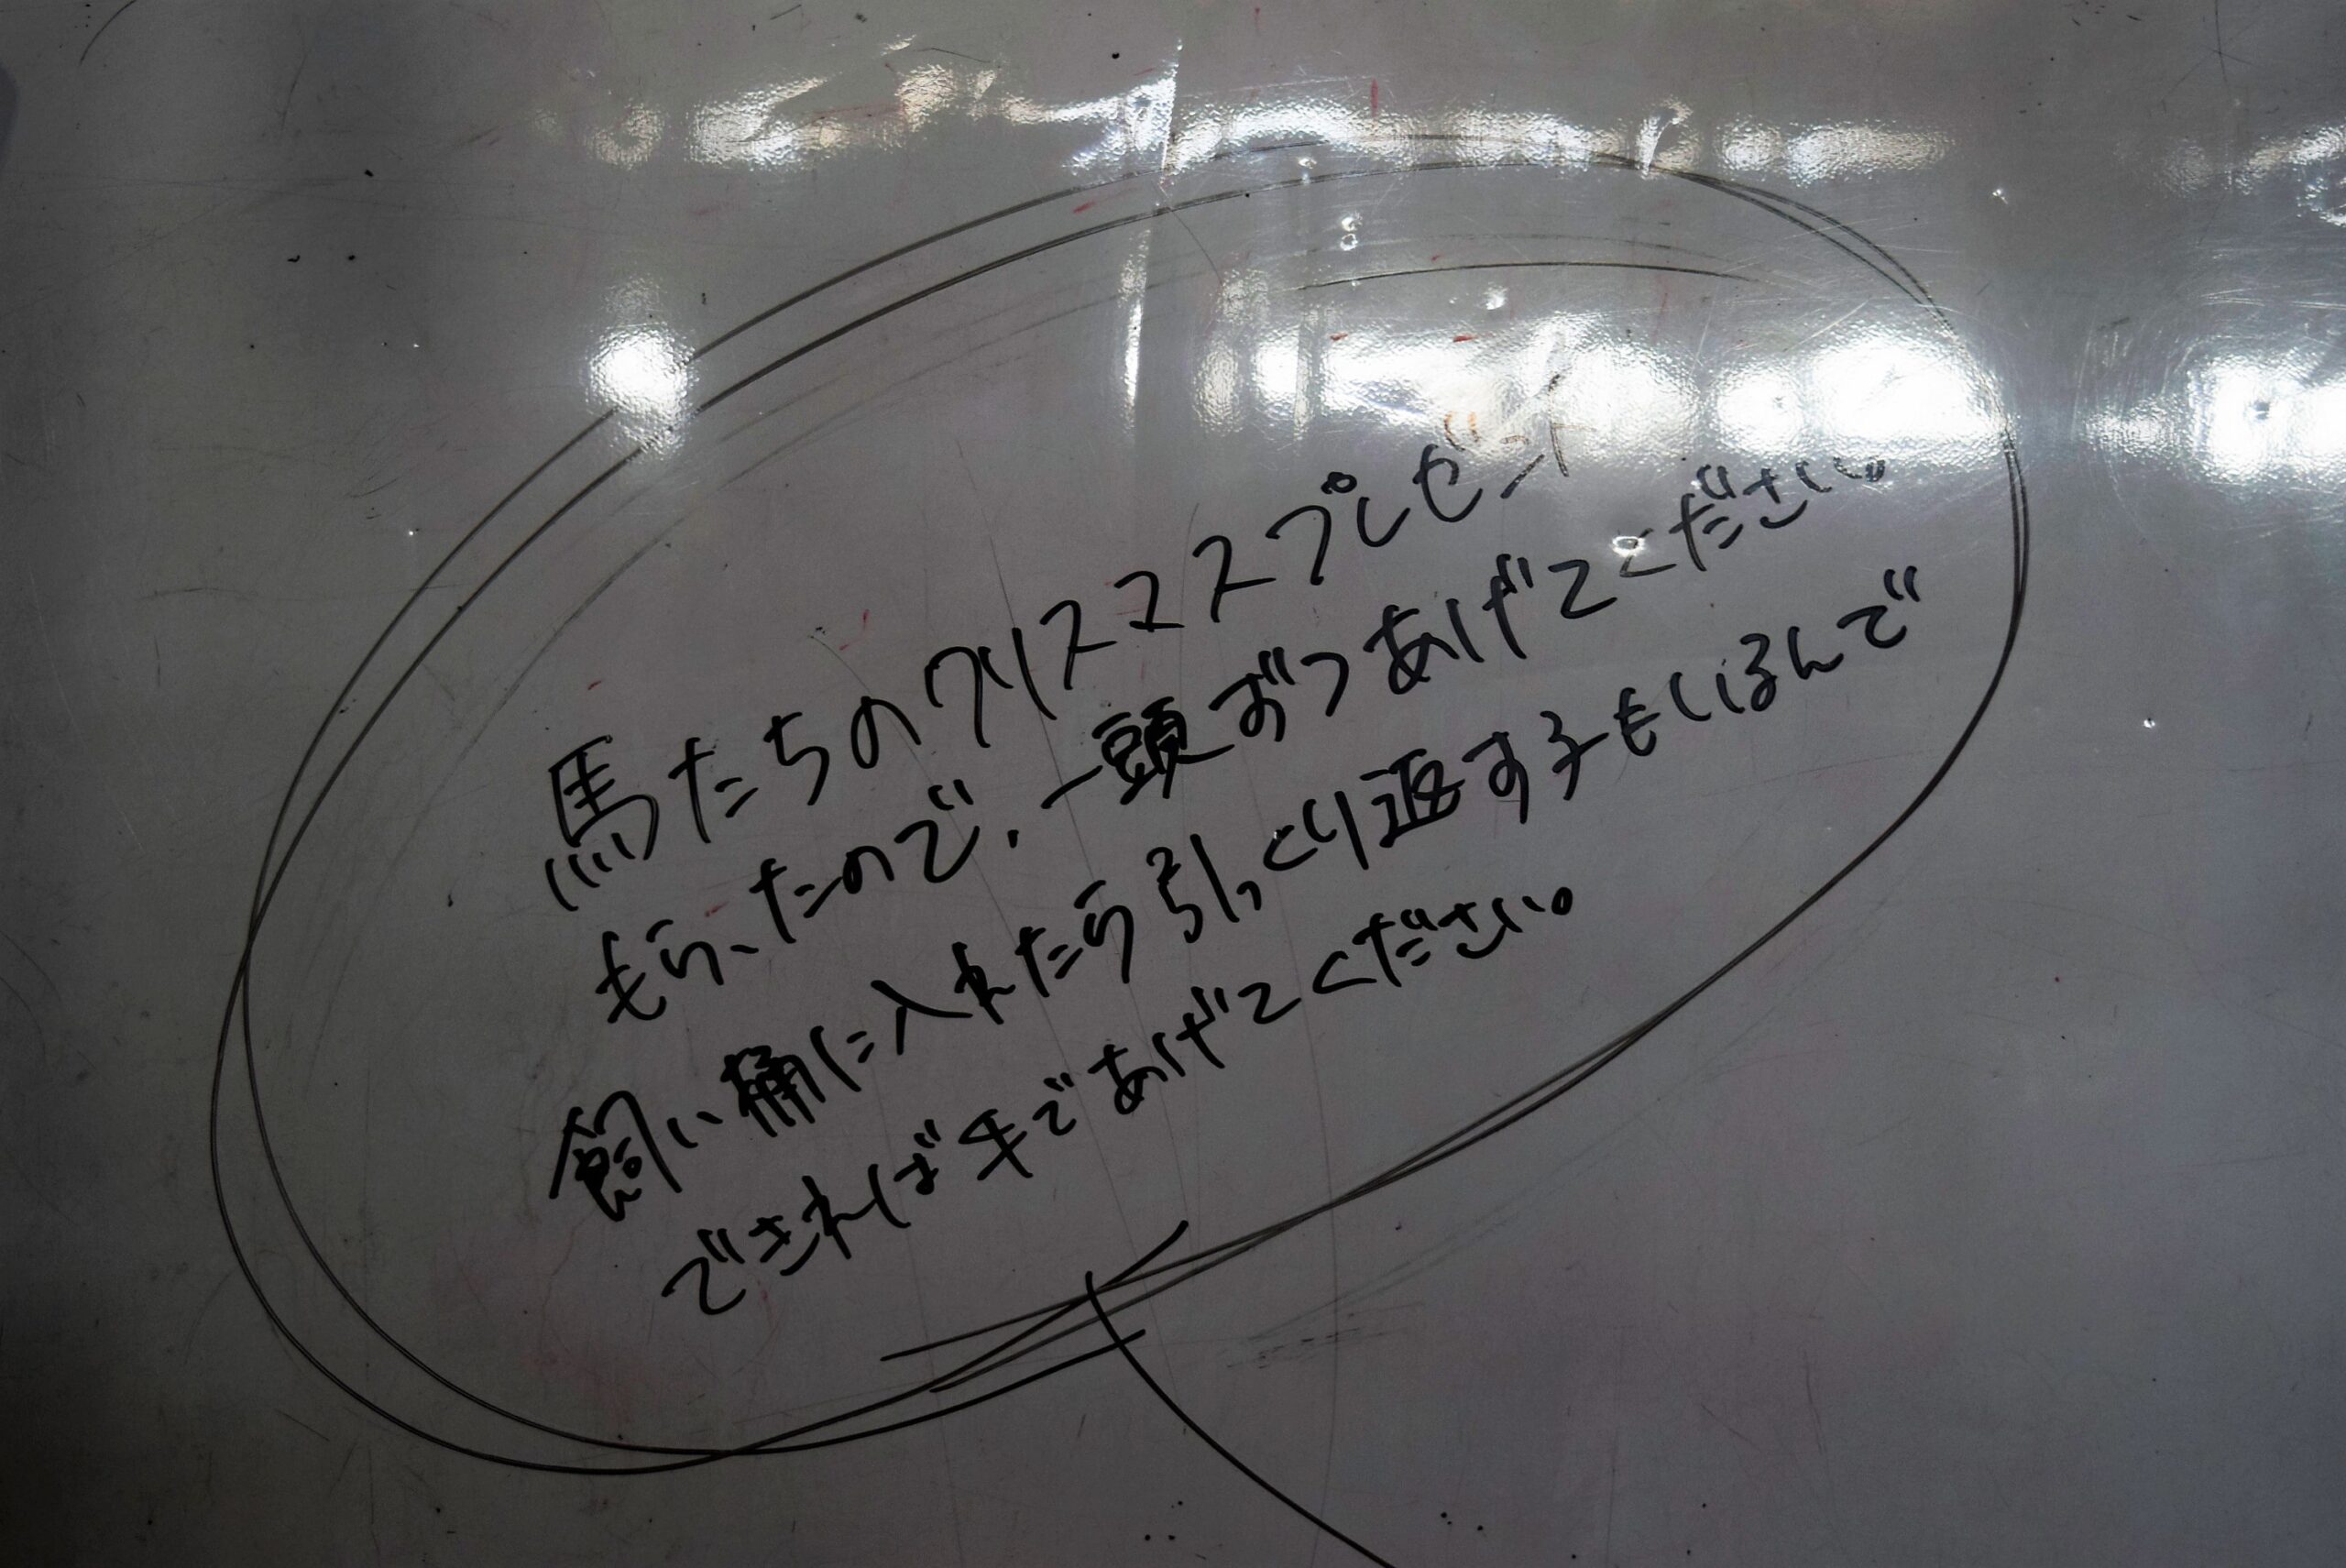 馬たちのクリスマスプレゼント
もらったので、一頭ずつあげてください。
飼い桶に入れたら引っくり返す子もいるんで
できれば手であげてください。